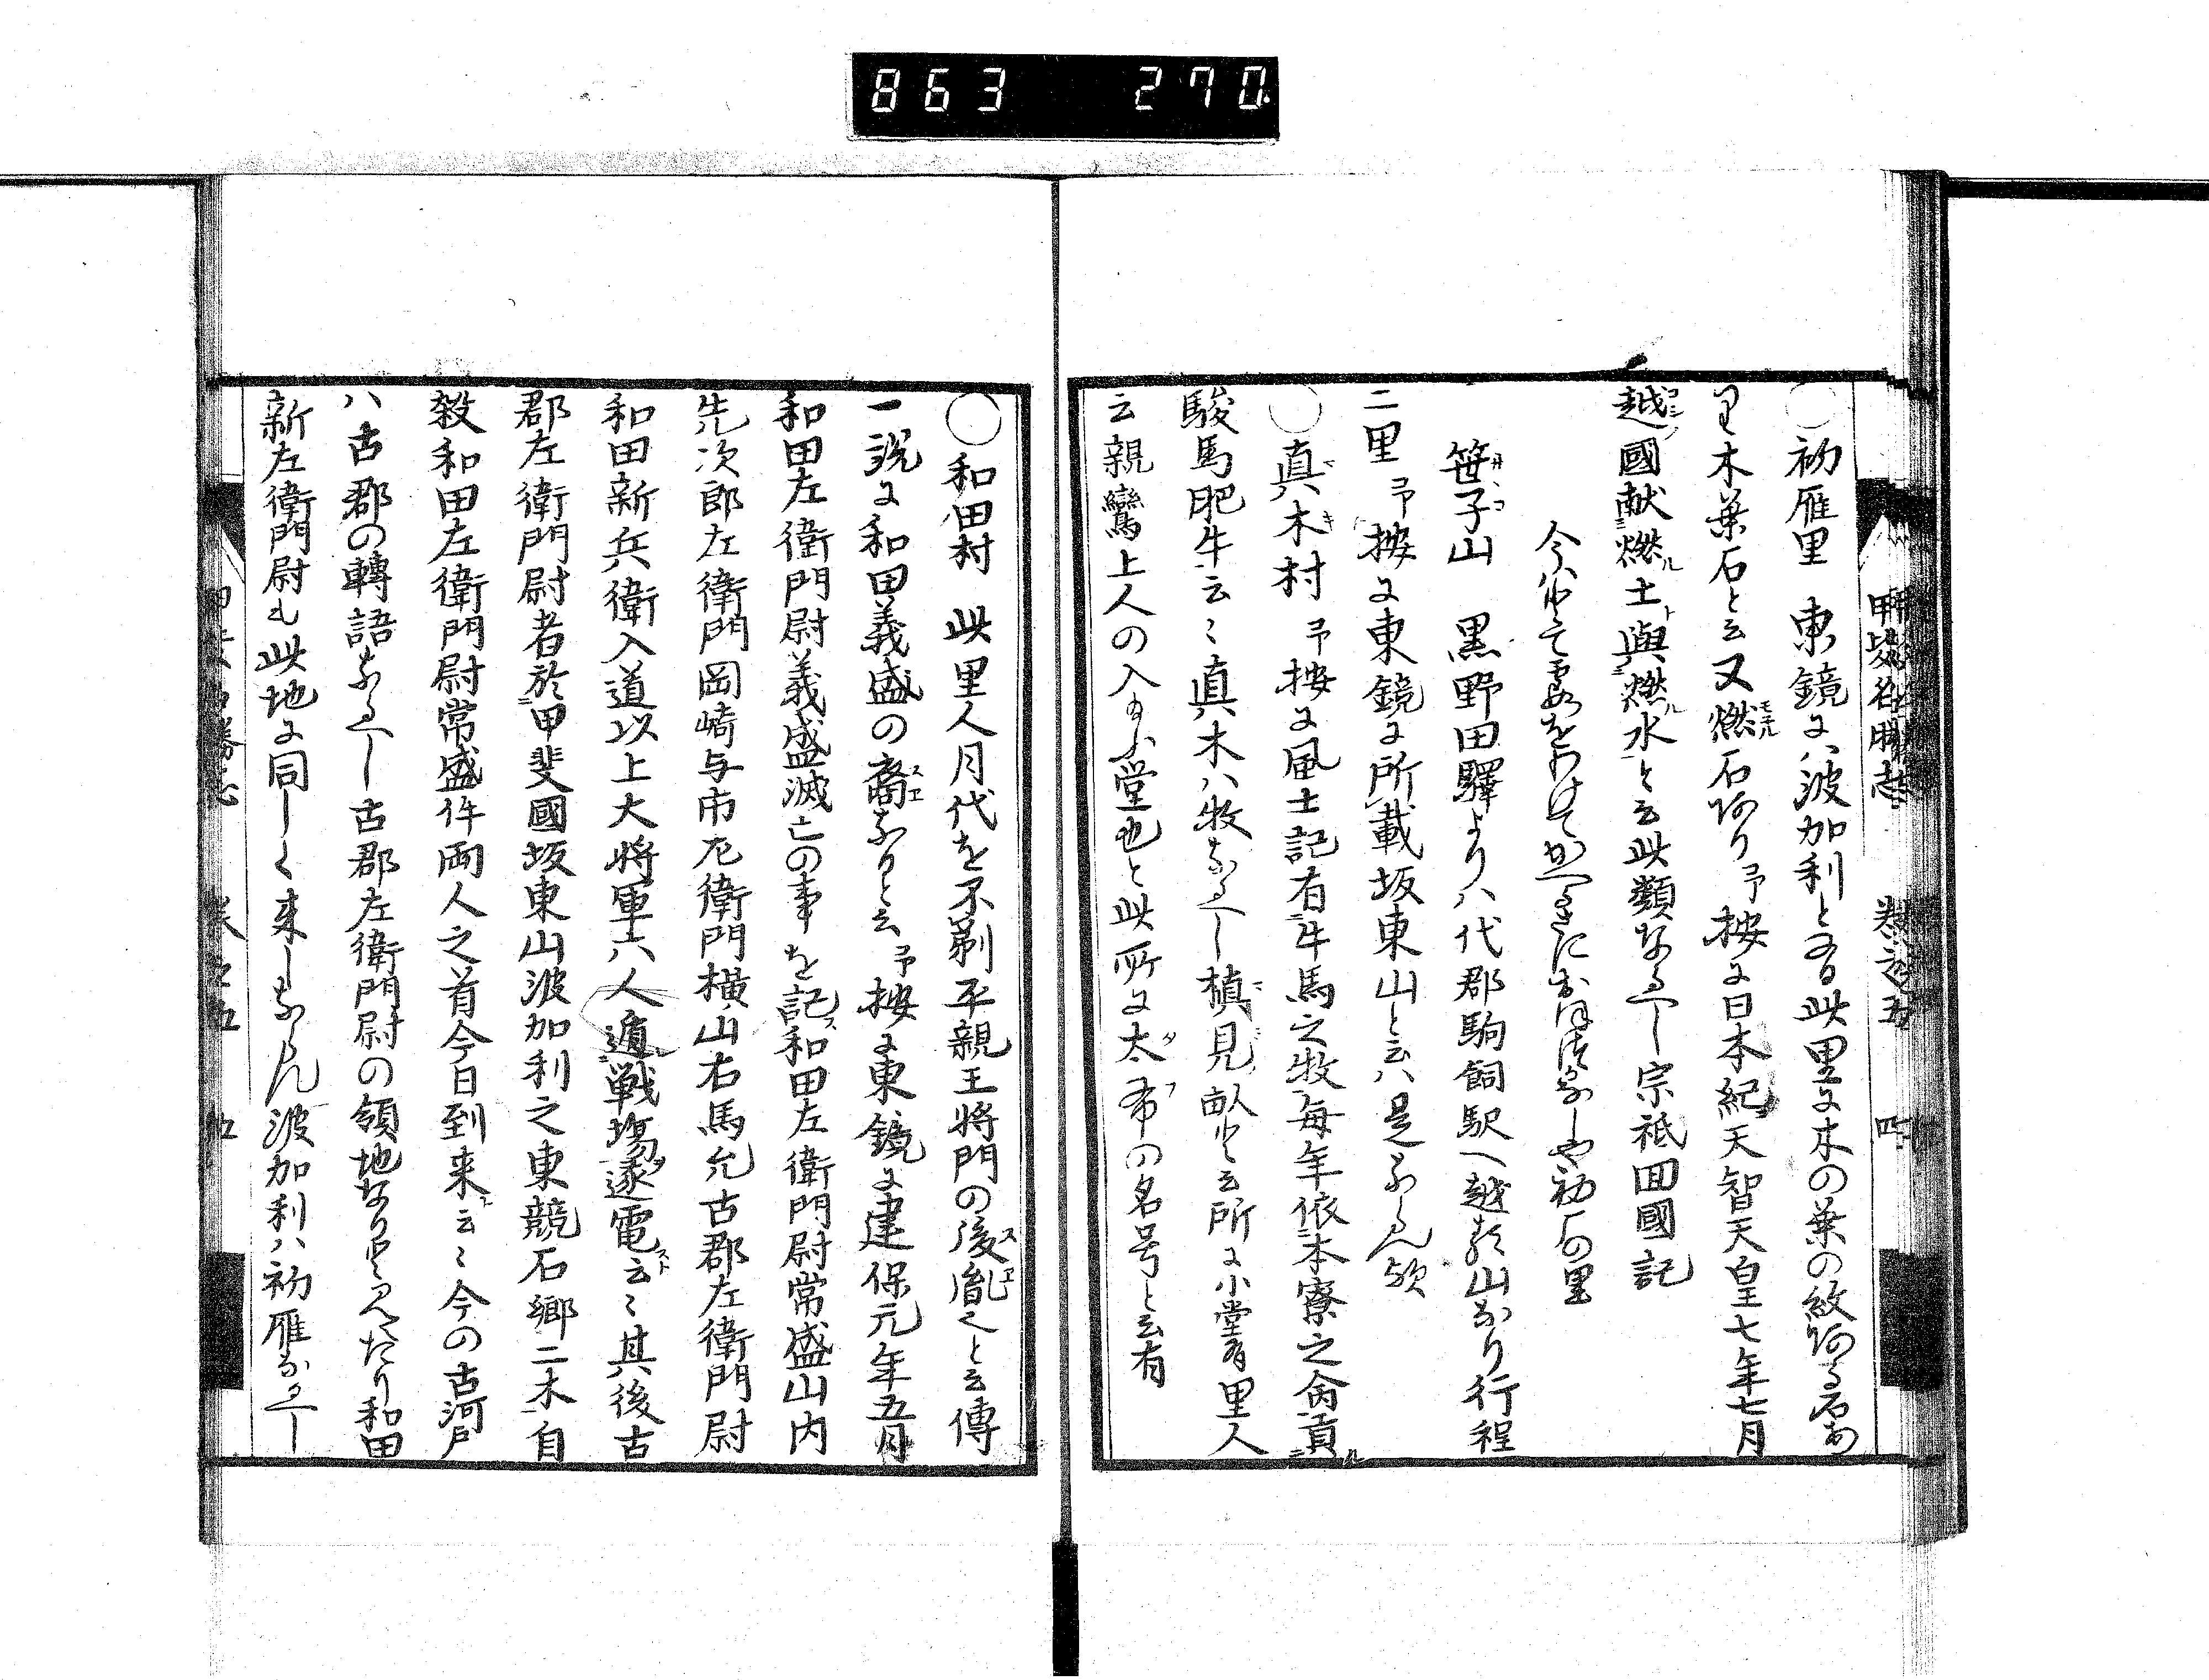 863 270
甲斐名勝志 巻之五 四
〇初雁里 東鏡に波加利と有此里に木の葉の紋ある石あ
り木葉石と云又燃石あり予按に日本紀天智天皇七年七月
越國献燃土與燃水と云此類なるへし宗祇回國記
今はとて霞をわけてかへるさにおほつかなしや初石の里
笹子山 黒野田驛より八代郡駒飼駅へ越る山なり行程
二里予按に東鏡に所載坂東山と云ハ是ならん欤
〇真木村 予按に風土記有牛馬之牧毎年依本寮之命貢
駿馬肥牛云〻真木ハ牧なるへし槙見畝と云所に小堂有里人
云親鸞上人の入し堂也と此所に太布の名号と云有
〇和田村 此里人月代を不剃平親王将門の後胤と云傳
一説に和田義盛の裔なりと云予按に東鏡に建保元年五月
和田左衛門尉義盛滅亡の事を記和田左衛門尉常盛山内
先次郎左衛門岡崎与市左衛門横山右馬允古郡左衛門尉
和田新兵衛入道以上大将軍六人遁戦場逐電云〻其後古
郡左衛門尉者於甲斐國坂東山波加利之東競石郷二木自
殺和田左衛門尉常盛件両人之首今日到来云〻今の古河戸
ハ古郡の轉語なるへし古郡左衛門尉の領地なりと見へたり和田
新左衛門尉も此地に同しく来しならん波加利ハ初雁なるへし
甲斐名勝志 巻之五 五